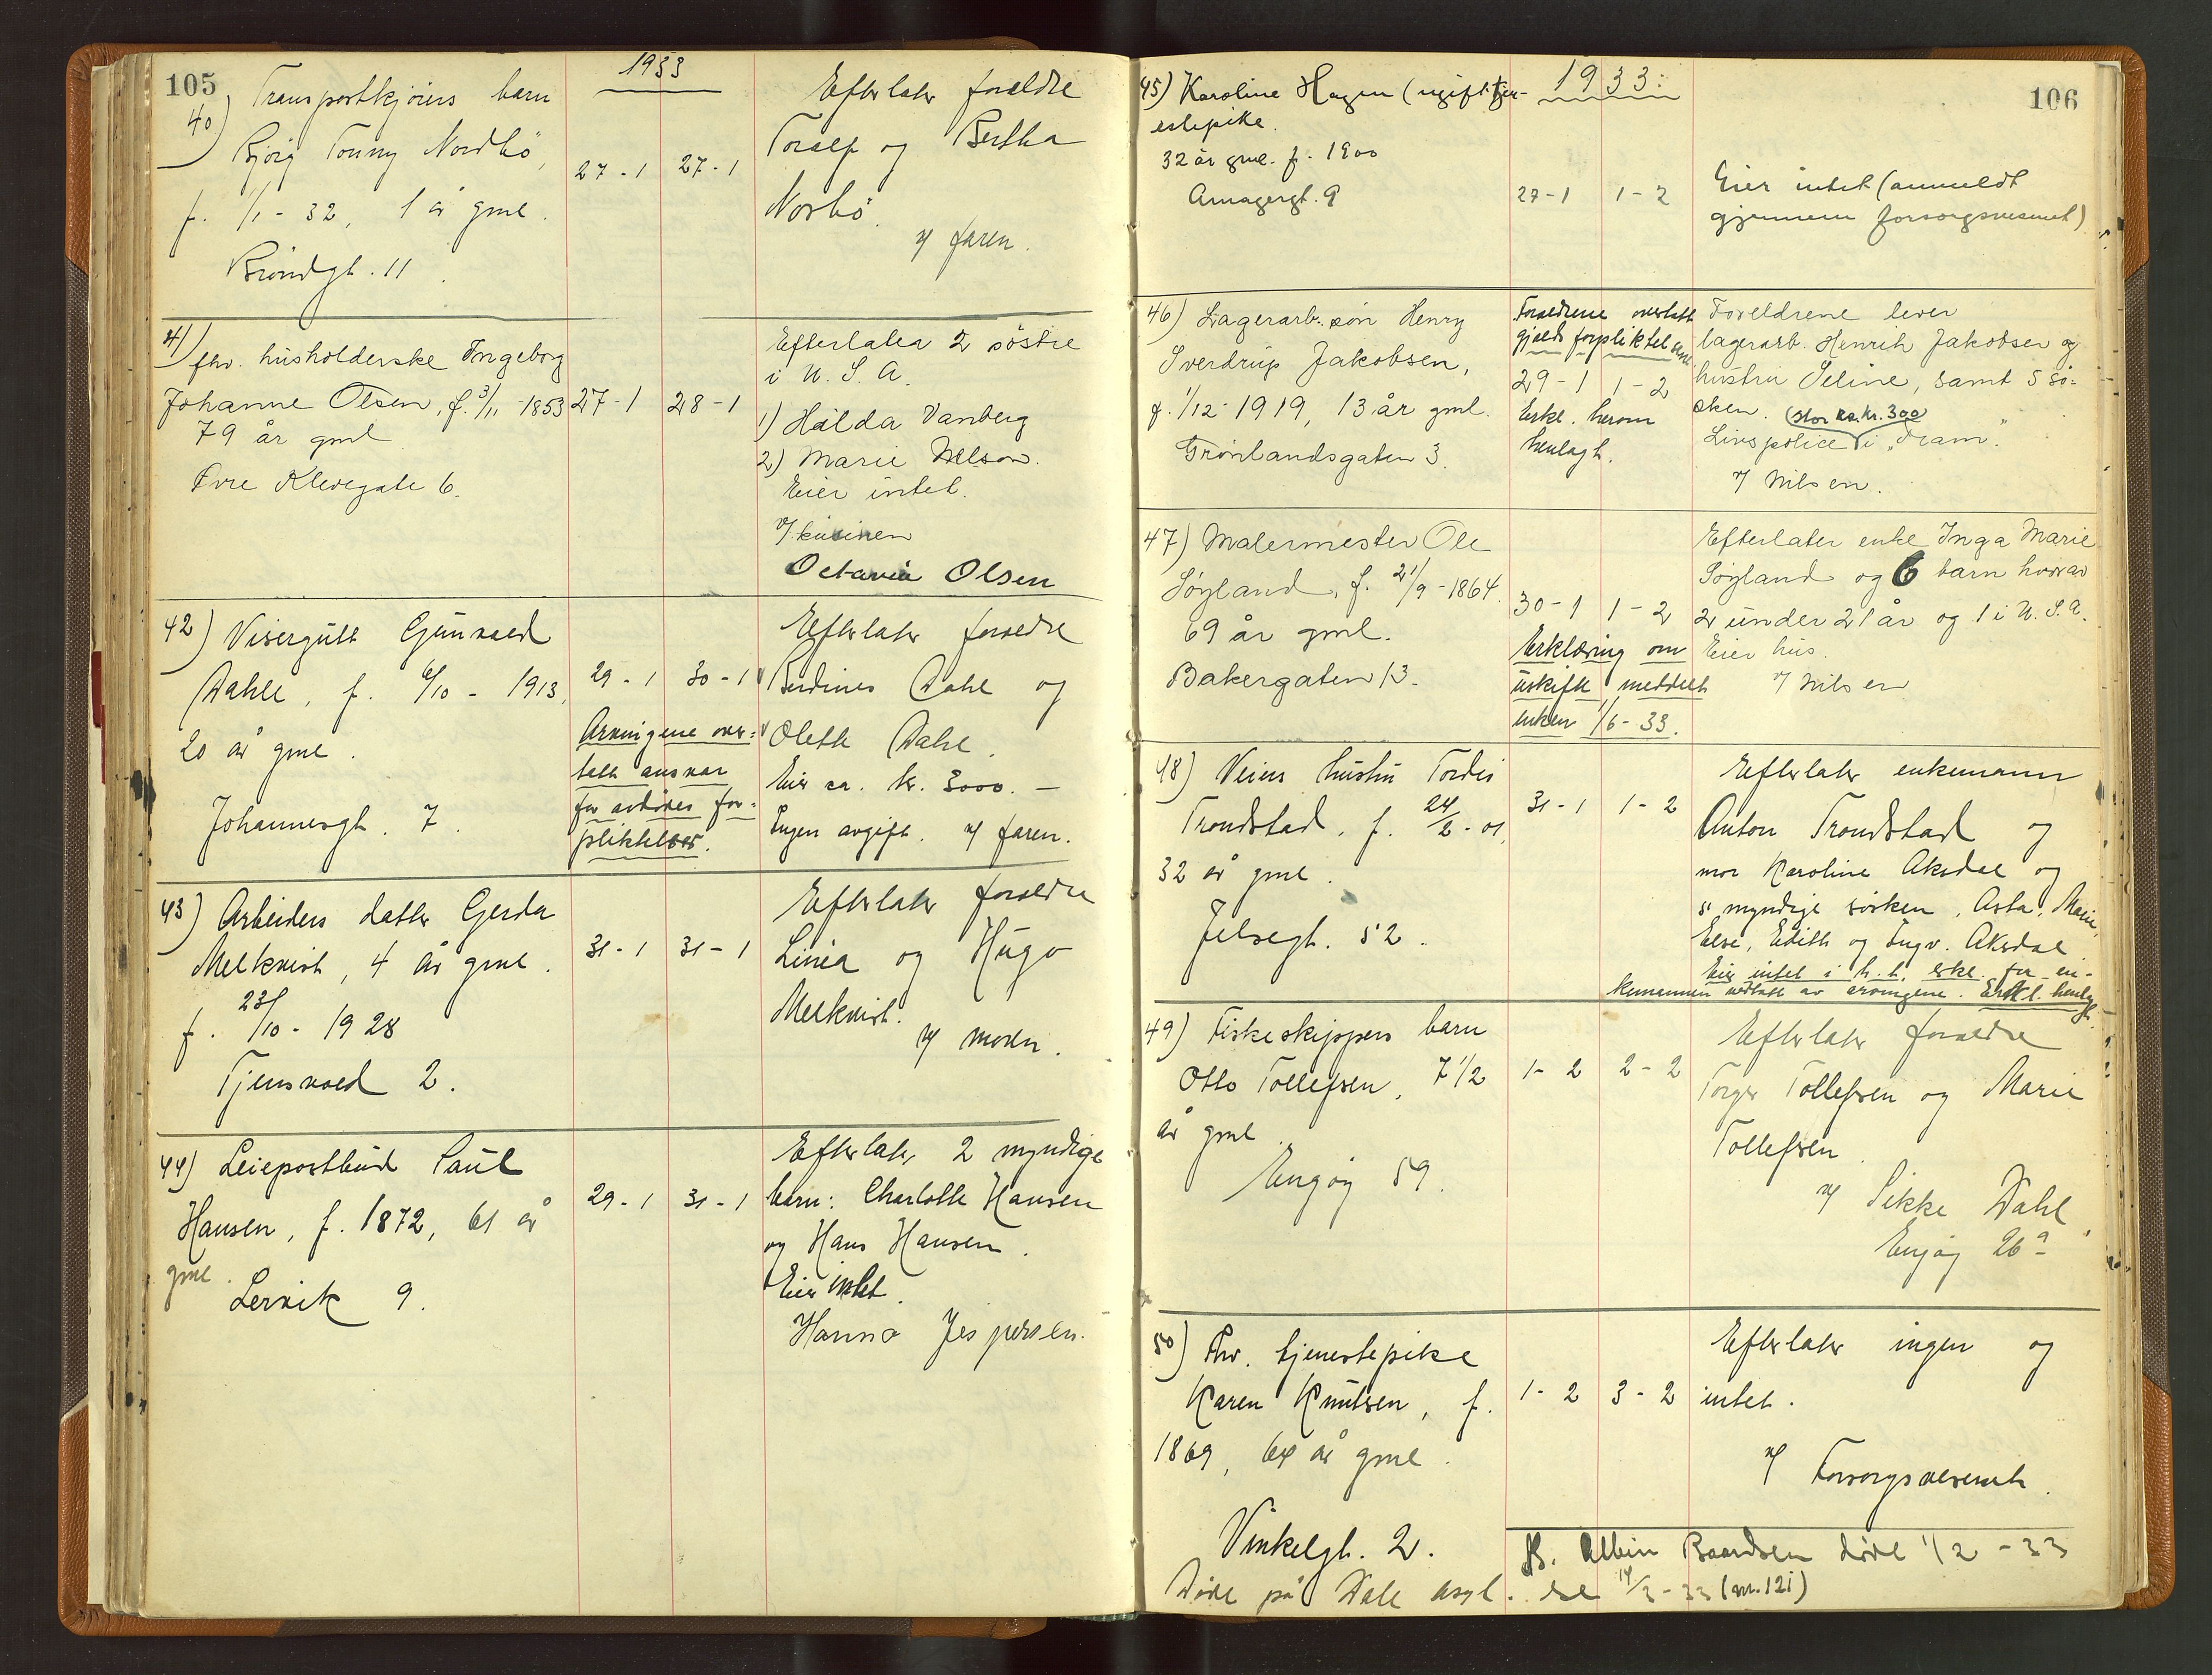 105
1933
40) Transportkjørers barn
Bjørg Tonny Nordbö,
f. 1/1 - 32, 1 år gml.
Bröndgt. 11.
27-1 27-1
Efterlater foreldre
Toralf og Bertha
Norbö.
v/ faren.
41) fhv. husholderske Ingeborg
Johanne Olsen, f. 3/11 1853
79 år gml
Øvre Klevegate 6.
27-1 28-1
Efterlater 2 söstre
i U.S.A.
1) Hilda Vanberg
2) Marie Nelson.
Eier intet.
v/ kusinen
Octavia Olsen
42) Visergutt Gunvald
Dahle, f. 6/10 - 1913,
20 år gml.
Johannesgt. 7.
29-1 30-1
Arvingene over-
tatt ansvar
for avdödes for-
pliktelser.
Efterlater foreldre
Berdines Dahl og
Olette Dahl.
Eier ca. kr. 3000.-
Ingen avgift. v/ faren.
43) Arbeiders datter Gerda
Melkvist, 4 år gml.
f. 23/10 - 1928
Tjensvold 2.
31-1 31-1
Efterlater foreldre
Linea og Hugo
Melkvist.
v/ moren.
44) Leiepostbud Paul
Hansen, f. 1872, 61 år
gml.
Lervik 9.
29-1 31-1
Efterlater 2 myndige
barn: Charlotte Hansen
og Hans Hansen.
Eier intet.
Hanna Jespersen.
106
1933:
45) Karoline Hagen (ugift tjen-
estepike.
32 år gml. f. 1900
Amagergt. 9
27-1 1-2
Eier intet (anmeldt
gjennem forsorgsvesenet)
46) Lagerarb. sön Henry
Sverdrup Jakobsen,
f. 1/12-1919, 13 år gml.
Grönlandsgaten 3.
Foreldrene overtatt
gjelds forpliktelsene
29-1 1-2
Erkl. herom
henlagt.
Foreldrene lever
lagerarb. Henrik Jakobsen og
hustru Seline, samt 5 sö-
sken. (stor ca. kr. 300)
Livspolice i "Fram".
v/ Nilsen.
47) Malermester Ole
Söyland, f. 21/9-1864.
69 år gml.
Bakergaten 13.
30-1 1-2
Erklæring om
uskifte meddelt
enken 1/6-33.
Efterlater enke Inga Marie
Söyland og 6 barn hvorav
2 under 21 år og 1 i U.S.A.
Eier hus.
v/ Nilsen
48) Veiers hustru Tordis
Trondstad, f. 24/2-01,
32 år gml.
Jelsegt. 52.
31-1 1-2
Efterlater enkemann
Anton Trondstad og
mor Karoline Aksdal og
5 myndige sösken, Asta, Marie,
Else, Edith og Ingv. Aksdal
Eier intet i h.t. erkl. fra en-
kemannen vedtatt av arvingene. Erkl. henlagt.
49) Fiskeskippers barn
Otto Tollefsen, 7 1/2
år gml.
Engøy 59.
1-2 2-2
Efterlater foreldre
Torger Tollefsen og Marie
Tollefsen.
v/ Sikke Dahl,
Engöy 26a
50) Fhv. tjenestepike
Karen Knutsen, f.
1869, 64 år gml.
Vinkelgt. 2.
Döde på Dale asyl.
1-2 3-2
Efterlater ingen og
intet.
v/ Forsorgsvesenet.
B. Albin Baardsen döde 1/2-33
se 14/3-33 (nr. 121)